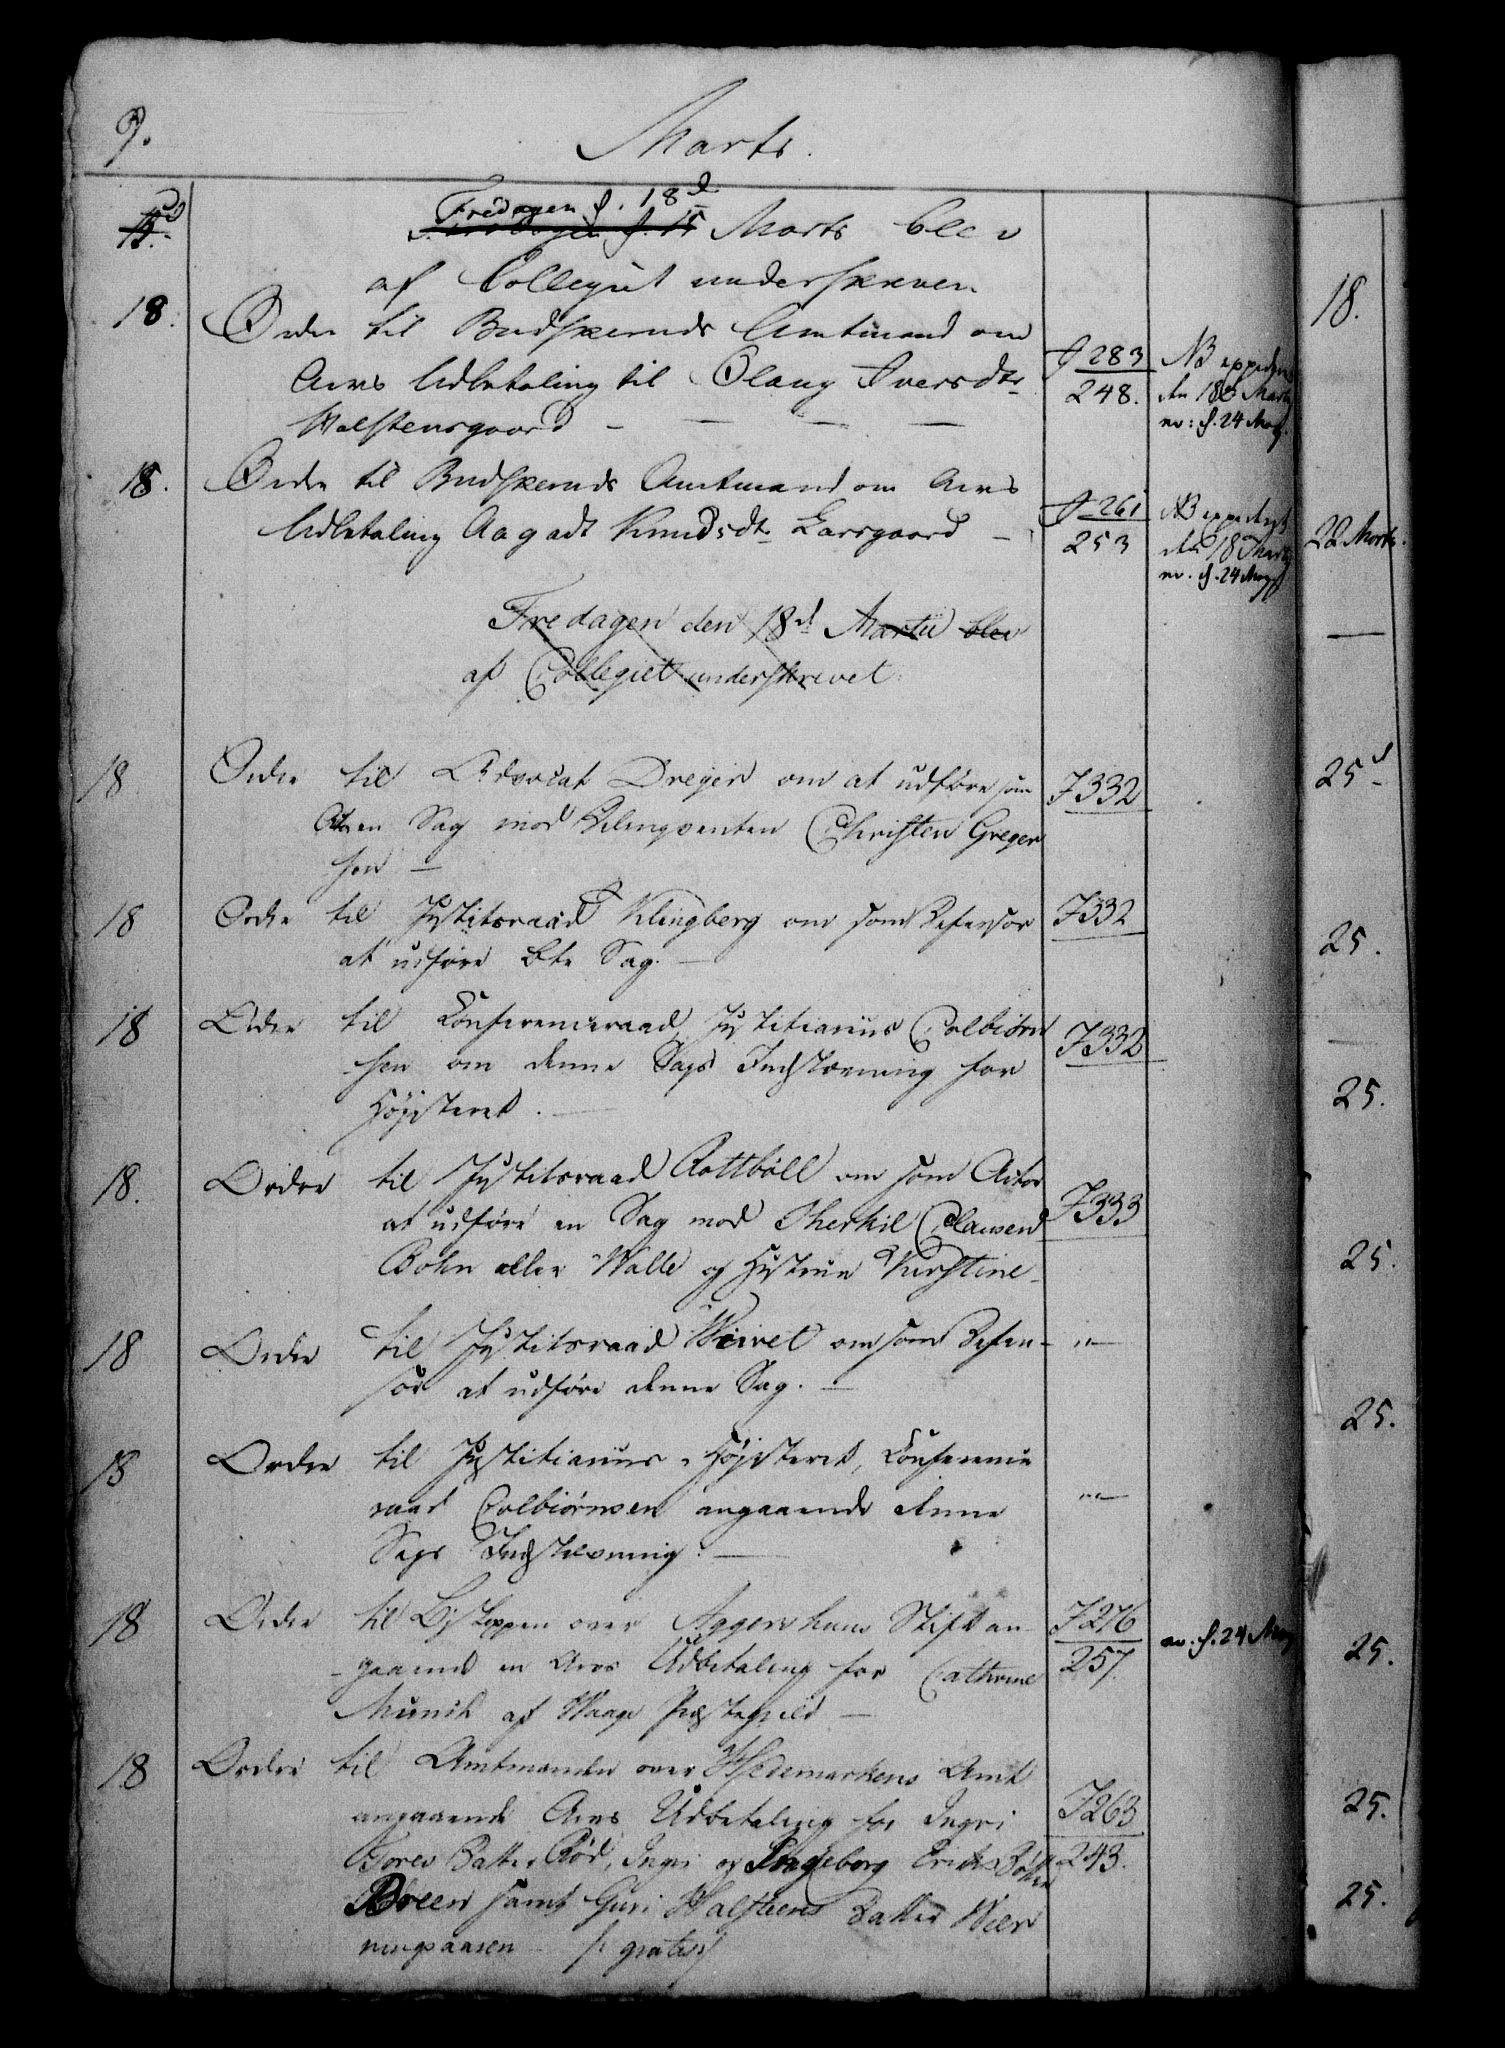 9.
Marts.
15d
Fredagen d. 18d
Marts blev
af Collegiet underskreven
18.
Ordre til Budskeruds Amtmand om
Arvs Udbetaling til Olaug Iversdtr
Halstensgaard —
J 283
248.
NB expederet
den 18d Martij
nr: d. 24 May.
18.
Ordre til Budskeruds Amtmand om Arvs
Udbetaling Aagadt Knudsdtr Larsgaard —
J 261
253
NB expederet
den 18 Martij
nr. d. 24 May
Fredagen den 18d Martii blev
af Collegiet underskrevet
18
Ordre til Advocat Dreyer om at udføre som
Actor en Sag mod Delinqventen Christen Greger
sen —
J332
18
Ordre til Justitsraad Klingberg om som Defensor
at udføre bte Sag. —
J332
18
Ordre til Conferenceraad, Justitiarius Colbiørn
sen om denne Sags Indstævning for
Høysteret. —
J332
18.
Ordre til Justitsraad Rottbøll om som Actor
at udføre en Sag mod Therkil Clausen
Bohn eller Walle og Hustrue Kirstine
J333
18
Ordre til Justitsraad Weivel om som Defen-
sor at udføre denne Sag. —
"—
18
Ordre til Justitiarius i Høysteret, Conference
raad Colbiørnsen angaaende denne
Sags Indstævning. —
"—
18
Ordre til Biskoppen over Aggershuus Stift an
gaaende en Arvs Udbetaling for Cathrine
Munch af Waage Præstegield —
J276
257.
nr. d. 24 May
18
Ordre til Amtmanden over Hedemarkens Amt
angaaende Arvs Udbetaling for Ingri
Tores Datter Rød, Ingri og Ingeborg Eriks Døttre
Breen samt Guri Halsteens Datter
ningsaasen (: gratis :)
J263
243.
18.
22 Marts.
—
25d
25.
25.
25.
25.
25.
25.
25.